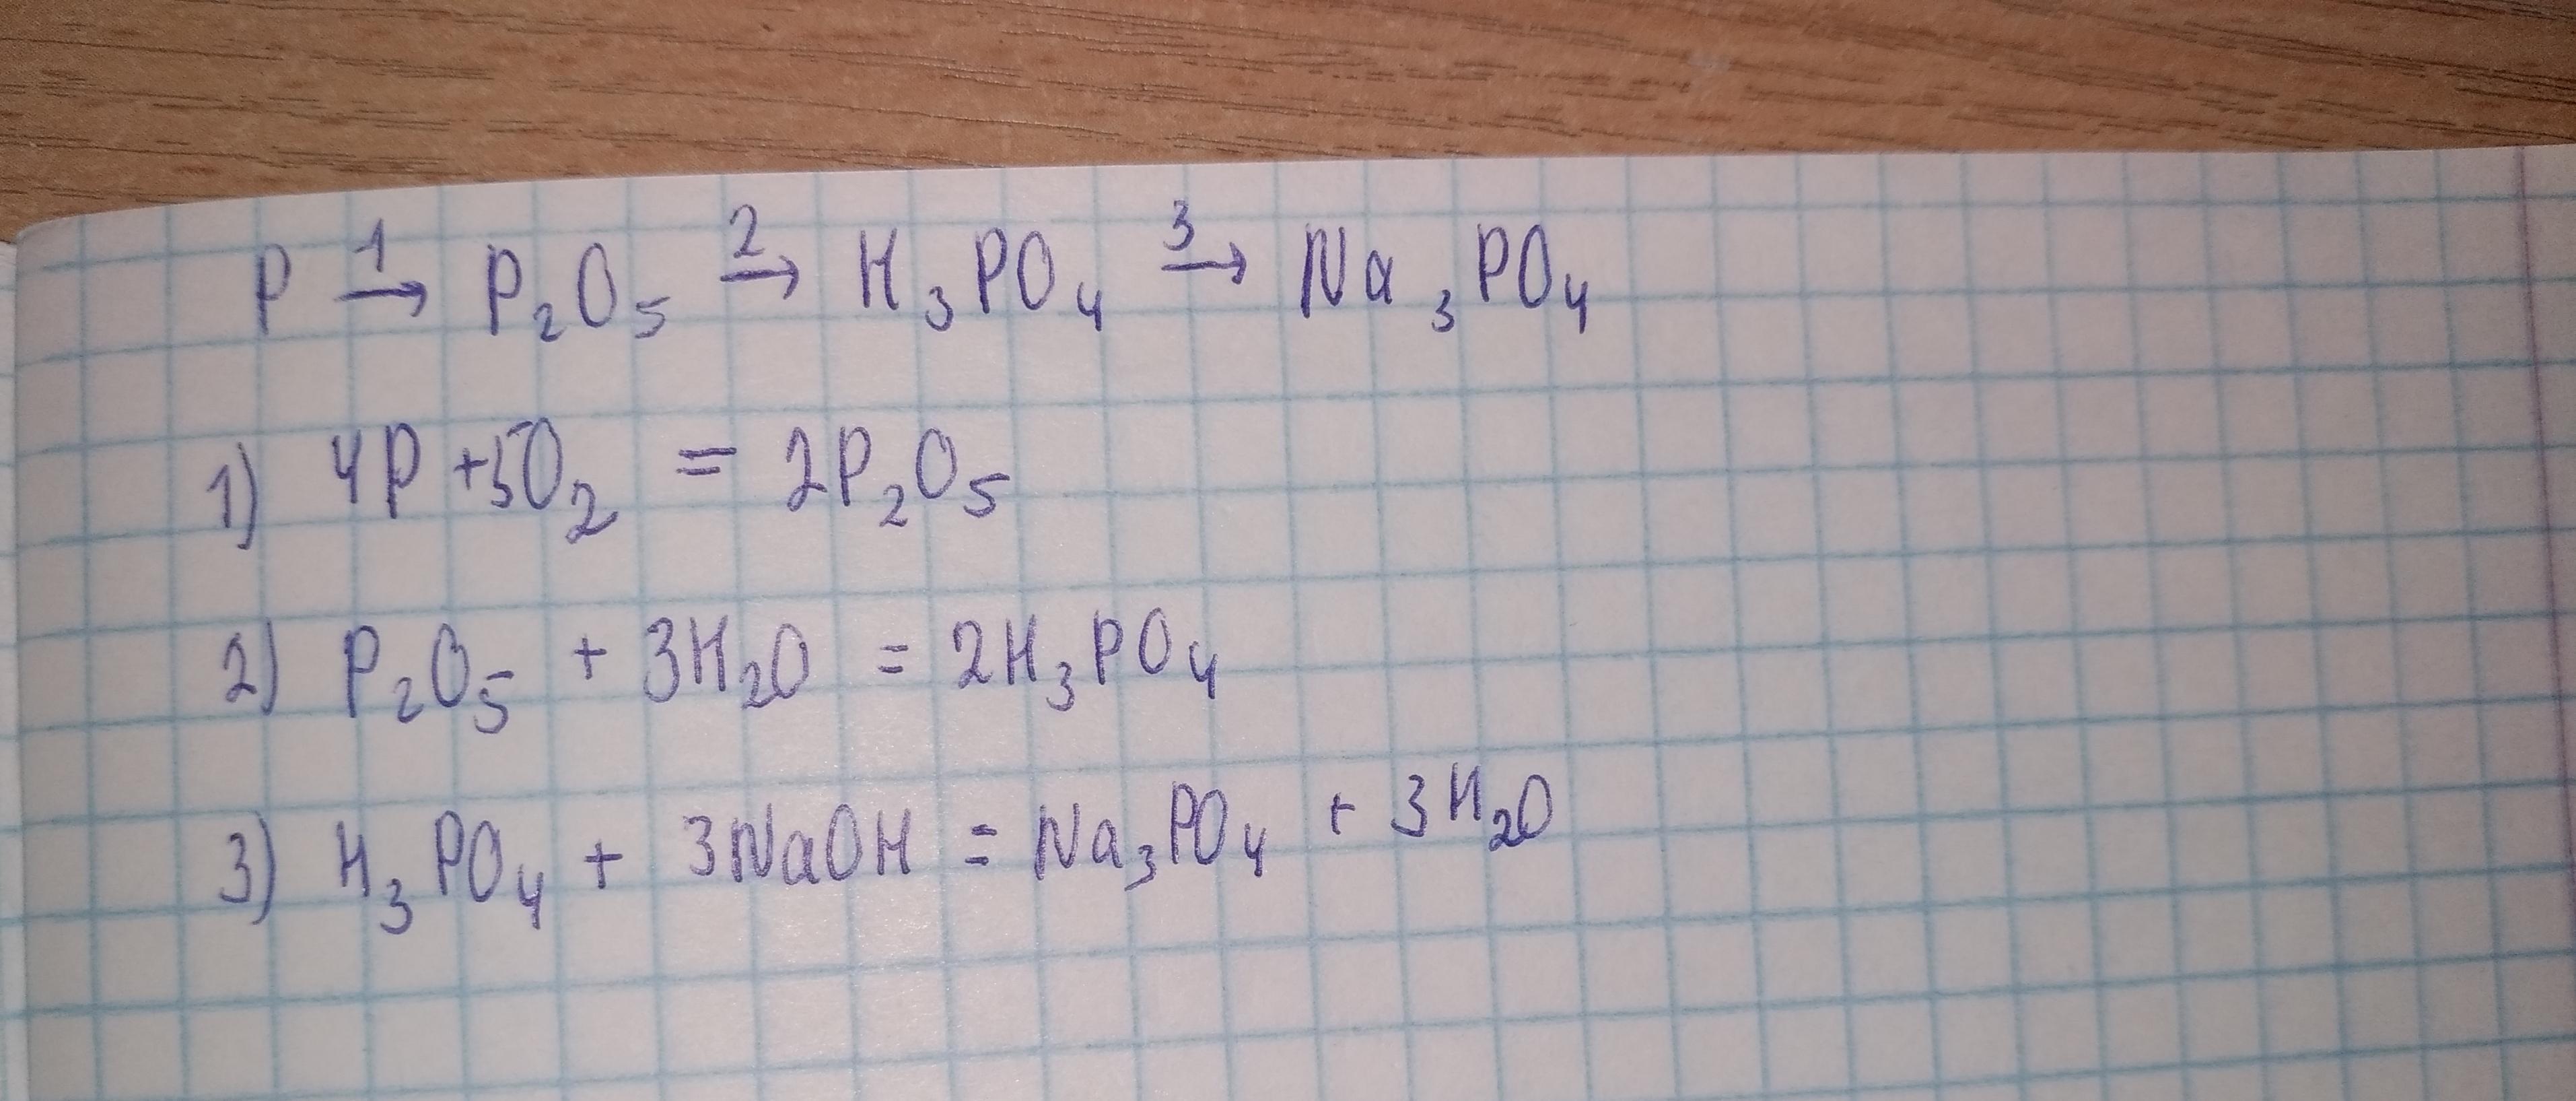 P 1→ P₂O₅ 2→ H₃PO₄ 3→ Na₃PO₄
1) 4P + 5O₂ = 2P₂O₅
2) P₂O₅ + 3H₂O = 2H₃PO₄
3) H₃PO₄ + 3NaOH = Na₃PO₄ + 3H₂O